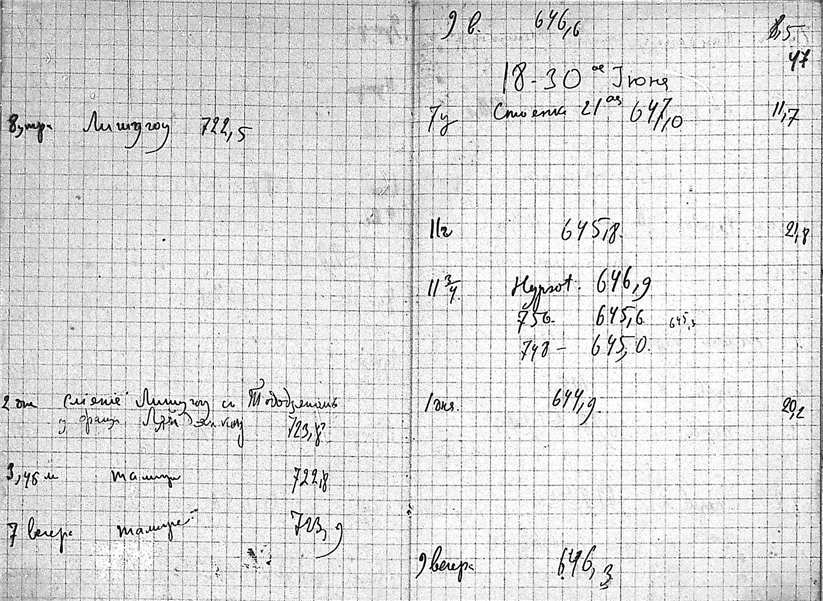 8 утр. Лишугоу 722,5
2 дня Лишугоу и
723,8
3,45 м 722,8
7 вечера 723,9
9 в. 646,6 8,5
47
18-30 ое Іюня
7 у Стоянка 21 ая 647,0 11,7
11 ч 645,8. 21,8
11 3/4 Hypsot. 646,9
756 645,6 645,3
748 — 645,0.
1 дня. 644,9. 20,2
9 вечера 646,3